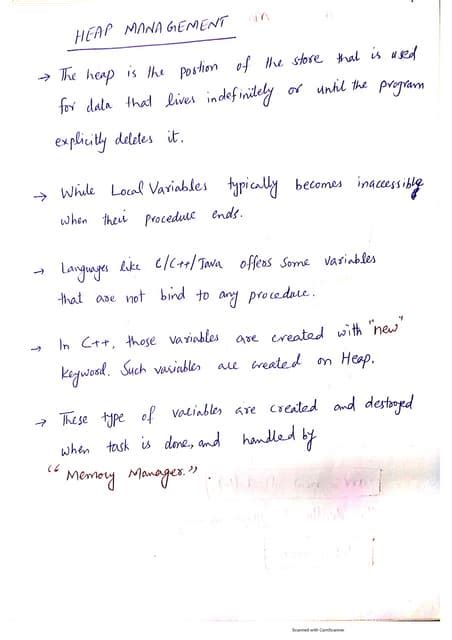 HEAP MANAGEMENT
→ The heap is the postion of the store that is used
for data that lives indefinitely or until the program
explicitly deletes it.
→ While Local Variables typically becomes inaccessible
when their procedure ends.
→ Languages like C/C++/Java offers some variables
that are not bind to any procedure.
→ In C++, those variables are created with "new"
keyword. Such variables are created on Heap.
→ These type of variables are created and destroyed
when task is done, and handled by
"Memory Manager."
Scanned with CamScanner